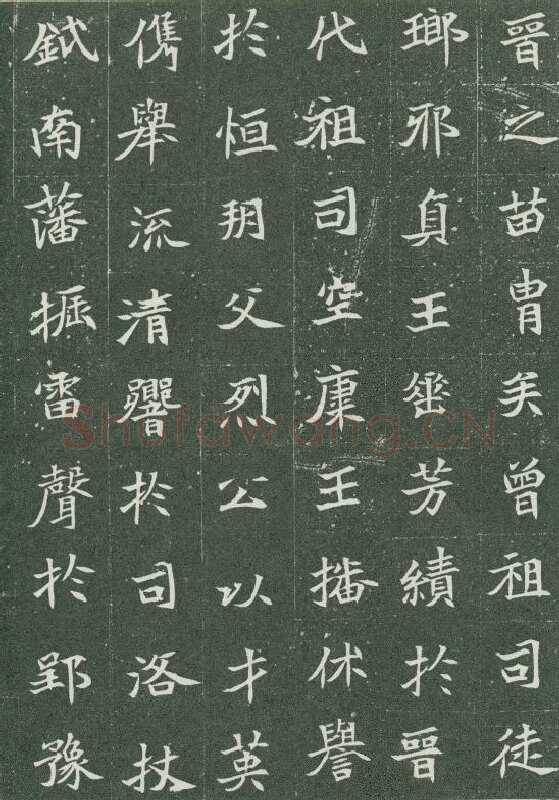 晉之苗胄矣曾祖司徒
瑯邪貞王垂芳績於晉
代祖司空康王播休譽
於恒玥父烈公以才英
儁舉流清響於司洛杖
鉞南藩振雷聲於郢豫
Shufawang.CN